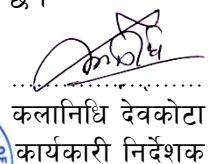 छ।
कलानिधि देवकोटा
कार्यकारी निर्देशक